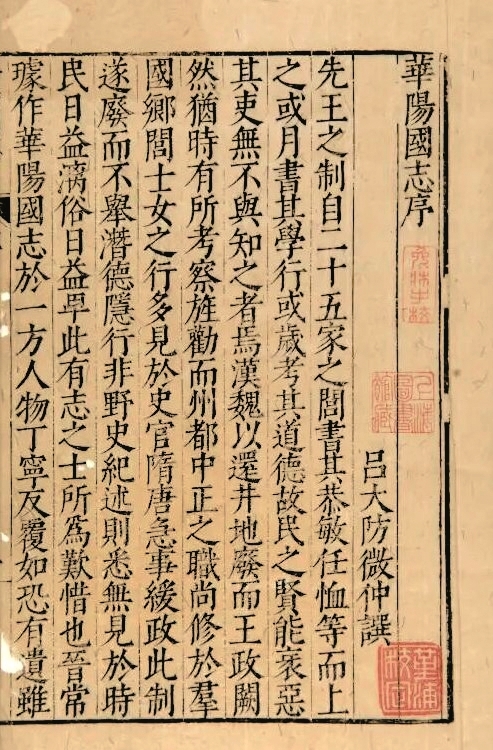 華陽國志序
呂大防微仲譔
先王之制自二十五家之閭書其恭敏任恤等而上
之或月書其學行或歲考其道德故民之賢能衺惡
其吏無不與知之者焉漢魏以還井地廢而王政闕
然猶時有所考察旌勸而州都中正之職尚修於羣
國鄉閭士女之行多見於史官隋唐急事緩政此制
遂廢而不舉潛德隱行非野史紀述則悉無見於時
民日益漓俗日益卑此有志之士所為歎惜也晉常
璩作華陽國志於一方人物丁寧反覆如恐有遺雖
上海圖書館藏